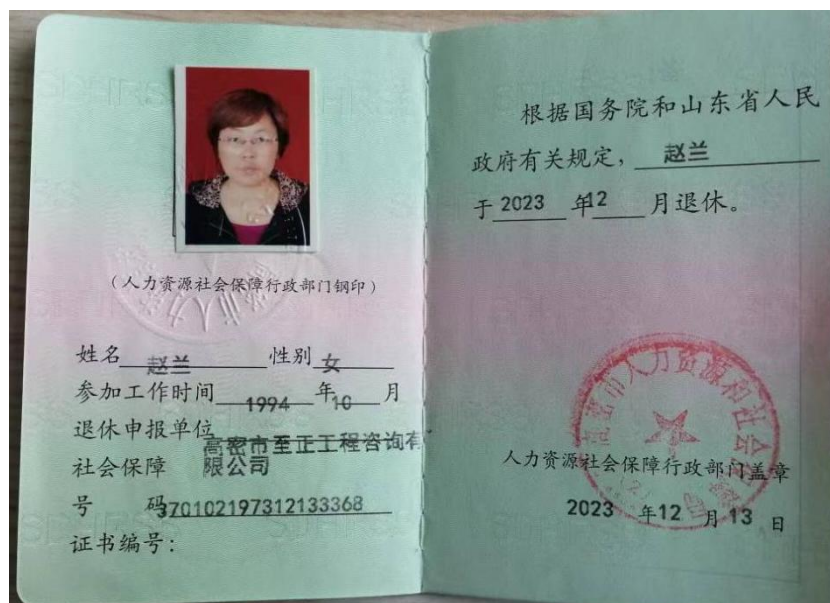 （人力资源社会保障行政部门钢印）
姓名 赵兰 性别 女
参加工作时间 1994 年 10 月
退休申报单位 高密市至正工程咨询有
社会保障 限公司
号 码 370102197312133368
证书编号：
根据国务院和山东省人民
政府有关规定， 赵兰
于 2023 年 12 月退休。
高密市人力资源和社会
人力资源社会保障行政部门盖章
(2)
2023 年 12 月 13 日